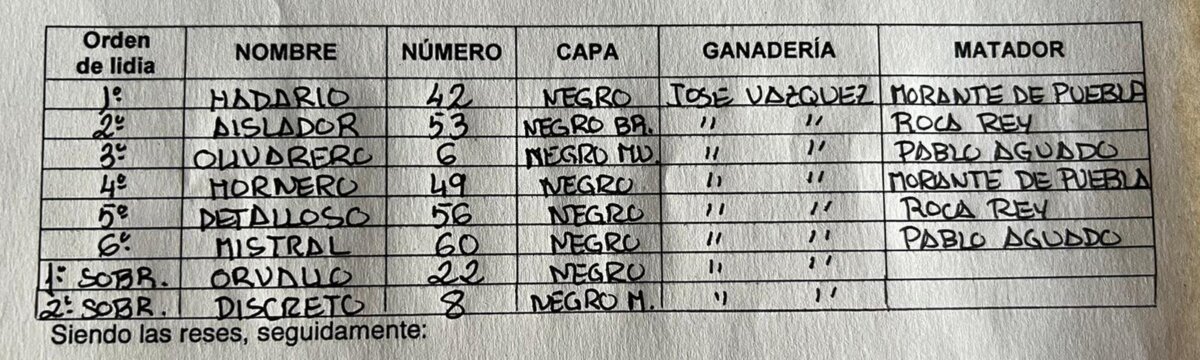 Orden de lidia NOMBRE NÚMERO CAPA GANADERÍA MATADOR
1º HADARIO 42 NEGRO JOSE VAZQUEZ MORANTE DE PUEBLA
2º AISLADOR 53 NEGRO BR. " " ROCA REY
3º OLIVARERO 6 NEGRO MU. " " PABLO AGUADO
4º HORNERO 49 NEGRO " " MORANTE DE PUEBLA
5º DETALLOSO 56 NEGRO " " ROCA REY
6º MISTRAL 60 NEGRO " " PABLO AGUADO
1º SOBR. ORVALLO 22 NEGRO " "
2º SOBR. DISCRETO 8 NEGRO M. " "
Siendo las reses, seguidamente: